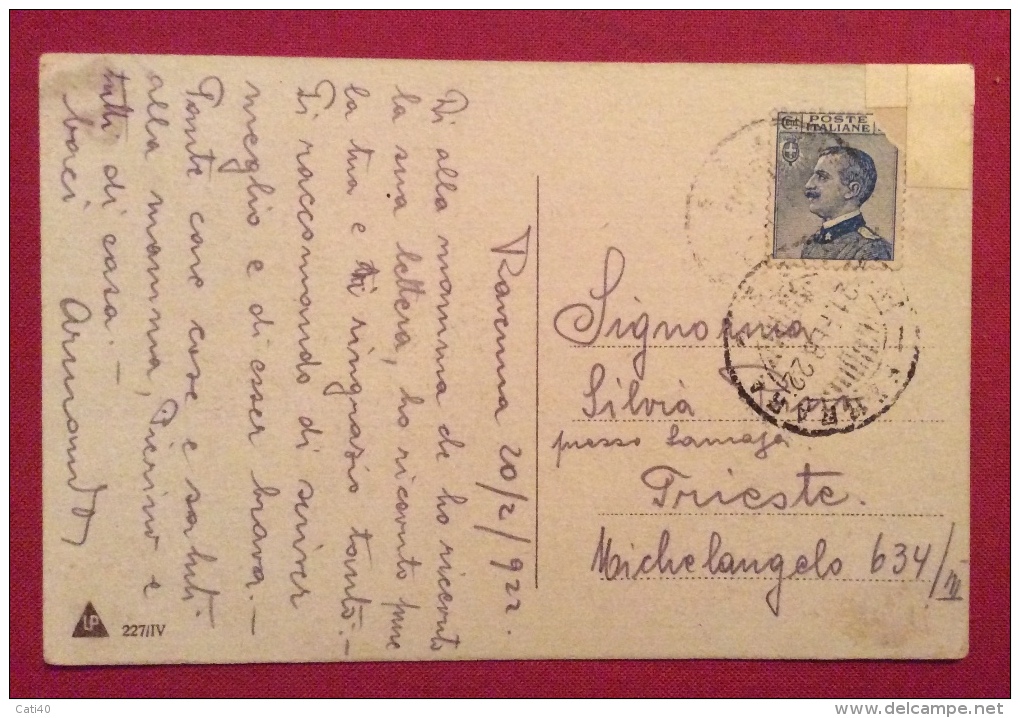 Ravenna 20/2/922.
Di alla mamma che ho ricevuto
la sua lettera, ho ricevuto pure
la tua e ti ringrazio tanto. —
Ti raccomando di scriver
meglio e di esser brava. —
Tante care cose e saluti
alla mamma, Pierino e
tutti di casa. —
baci Armando
Signorina
Silvia
presso
Trieste.
Michelangelo 634/III
POSTE
ITALIANE
LP
227/IV
Cati40